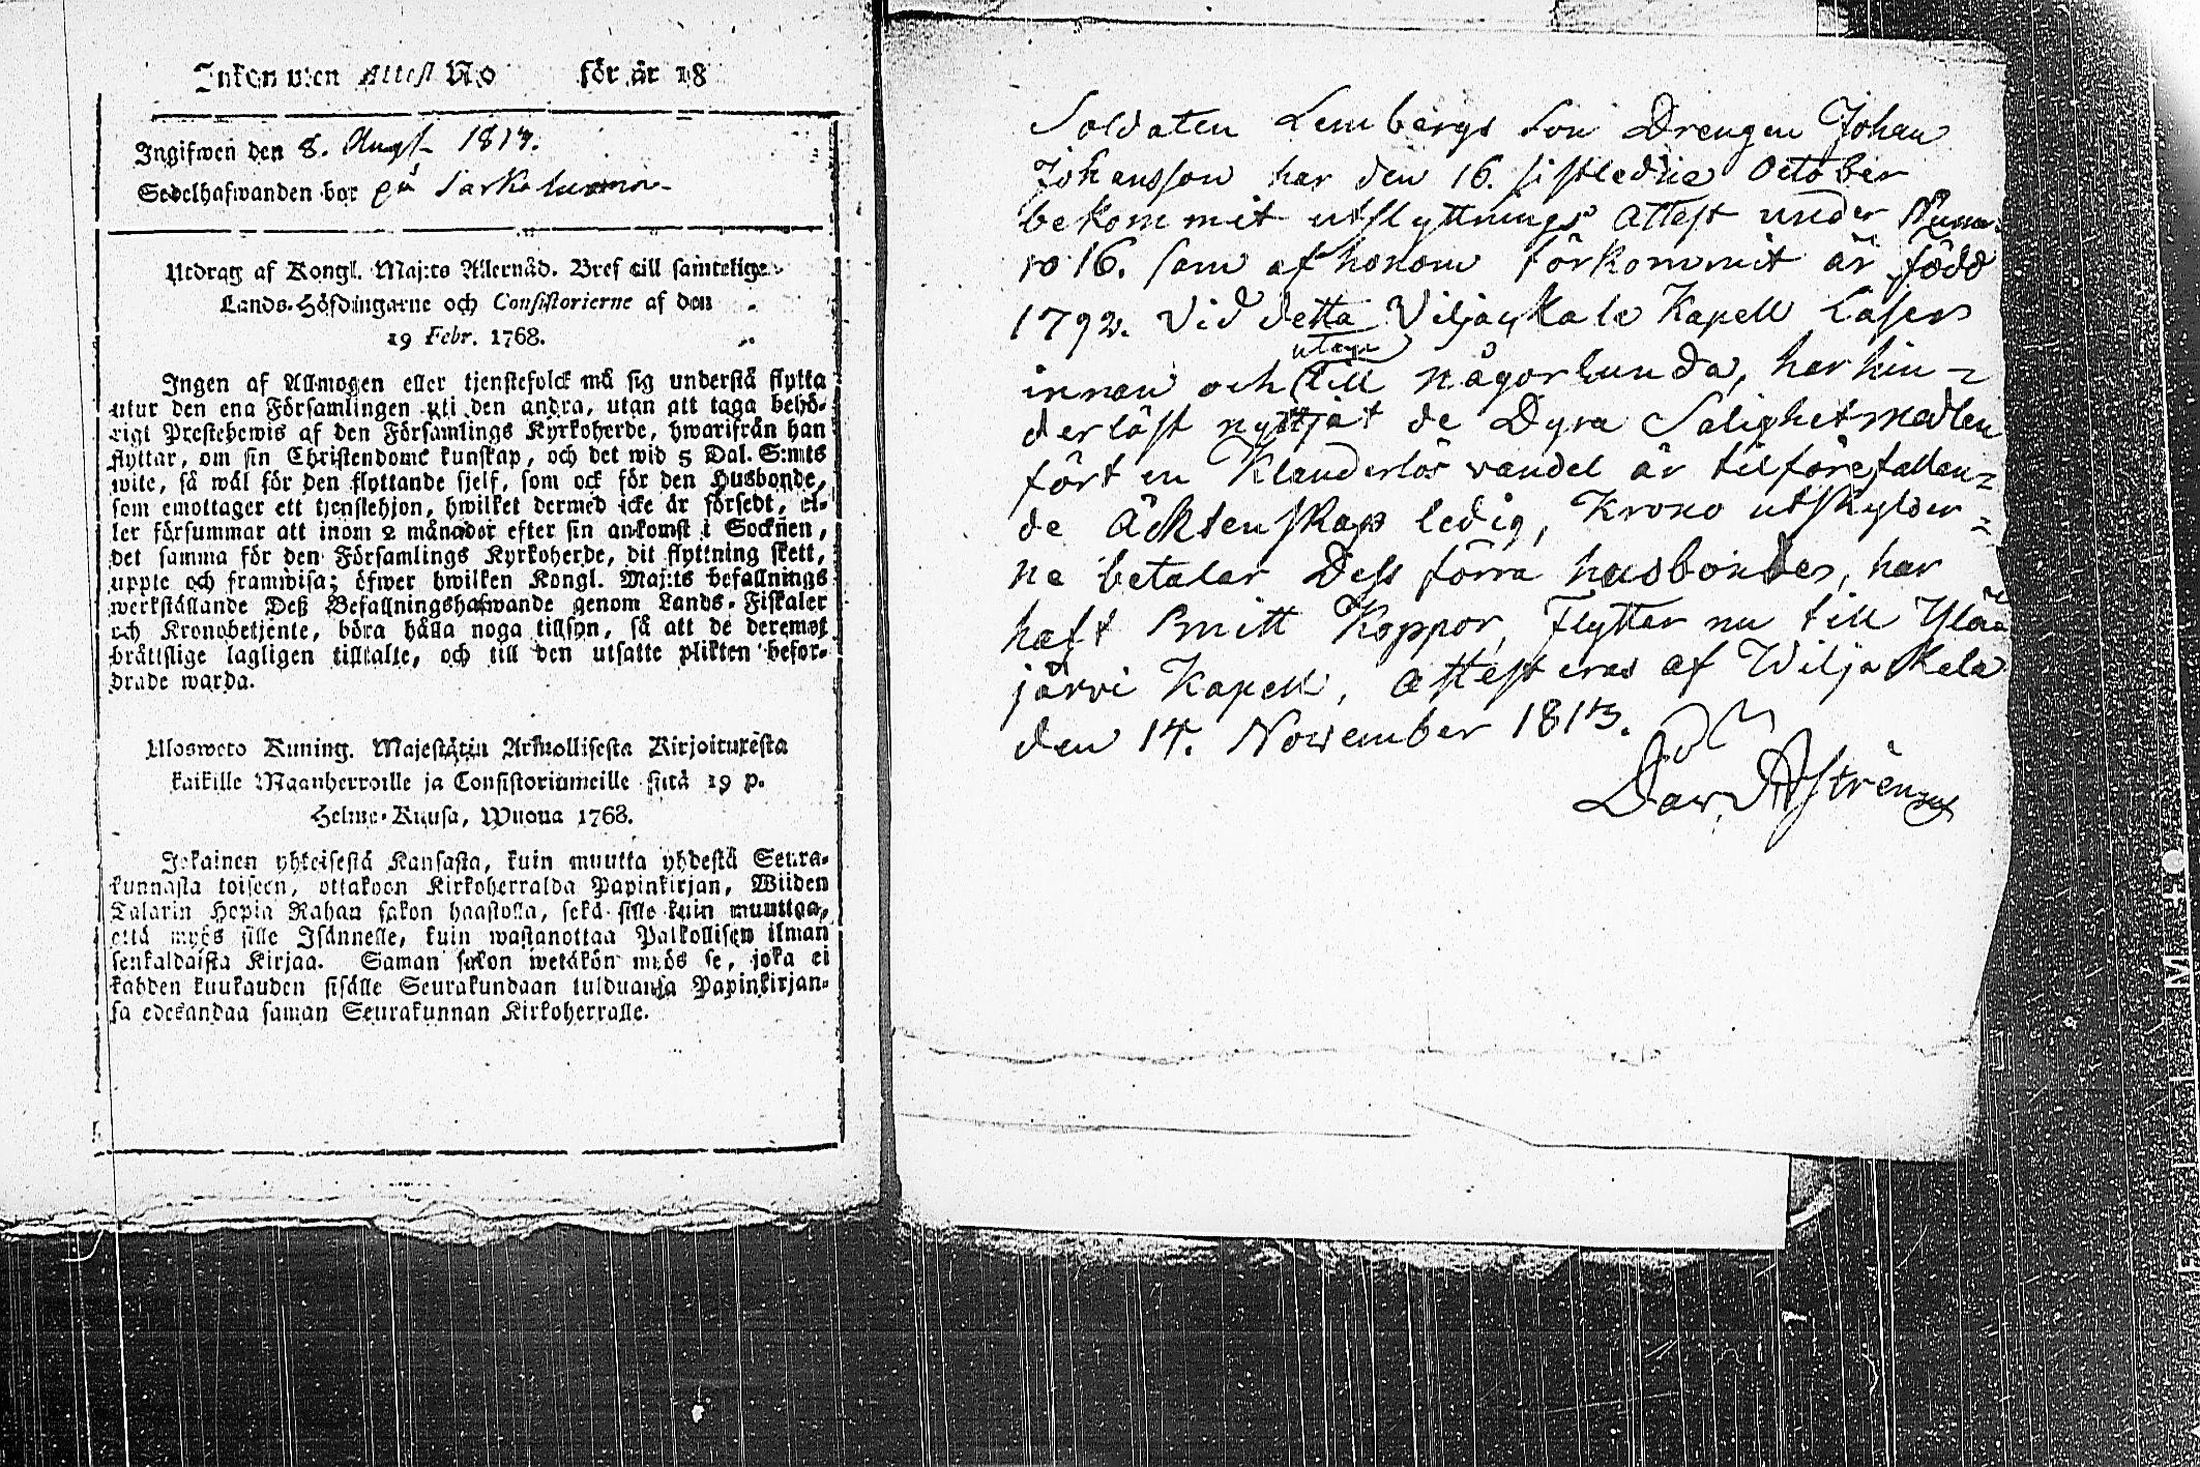 Inkommen Attest No för år 18
Ingifwen den 8. Augs. 1814.
Sedelhafwanden bor på
Utdrag af Kongl. Maj:ts Allernåd. Bref till samtelige
Lands-Höfdingarne och Consistorierne af den
19 Febr. 1768.
Ingen af Allmogen eller tjenstefolck må sig understå flytta
utur den ena Församlingen uti den andra, utan att taga behö-
rigt Prestebewis af den Församlings Kyrkoherde, hwarifrån han
flyttar, om sin Christendoms kunskap, och det wid 5 Dal. S:mts
wite, så wäl för den flyttande sjelf, som ock för den Husbonde,
som emottager ett tjenstehjon, hwilket dermed icke är försedt, el-
ler försummar att inom 2 månader efter sin ankomst i Socknen,
det samma för den Församlings Kyrkoherde, dit flyttning skett,
uppte och framwisa; öfwer hwilken Kongl. Maj:ts befallnings
werkställande Deß Befallningshafwande genom Lands-Fiskaler
och Kronobetjente, böra hålla noga tillsyn, så att de deremot
bråttslige lagligen tilltalte, och till den utsatte plikten befor-
drade warda.
Ulosweto Kuning. Majestätin Armollisesta Kirjoituxesta
kaikille Maanherroille ja Consistoriumeille siitä 19 p.
Helme-Kuusa, Wuona 1768.
Jokainen yhteisestä Kansasta, kuin muutta yhdestä Seura-
kunnasta toiseen, ottakoon Kirkoherralda Papinkirjan, Wiiden
Talarin Hopia Rahan sakon haastolla, sekä sille kuin muuttaa,
että myös sille Isännelle, kuin wastanottaa Palkollisen ilman
senkaldaista Kirjaa. Saman sakon wetäkön myös se, joka ei
kahden kuukauden sisälle Seurakundaan tulduansa Papinkirjan-
sa edesandaa saman Seurakunnan Kirkoherralle.
Soldaten Lembergs son Drengen Johan
Johansson har den 16. sistledne October
bekommit utflyttnings attest under Nume-
ro 16. som af honom förkommit är född
1792. Vid detta Viljackala Kapell Läser
utan
innan och till någorlunda, har hin-
derlöst nyttjat de Dyra Salighetsmedlen
fört en Klanderlös vandel är tilförefallan-
de Äcktenskap ledig, Krono utskylder-
na betalar Dess förra husbonde, har
haft Smitt Koppor, Flyttar nu till Ylö-
järvi Kapell, attesteras af Wiljackala
den 14. November 1813.
Dav. Aström